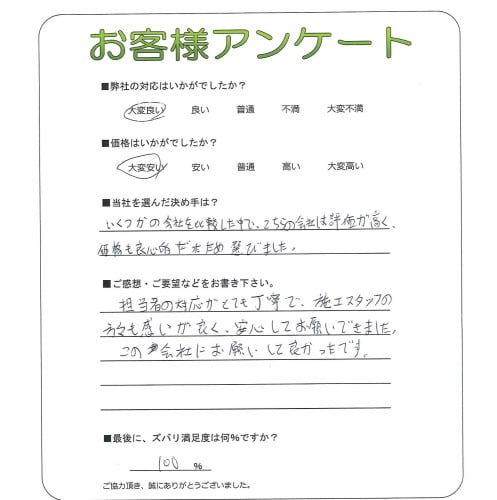 お客様アンケート
■弊社の対応はいかがでしたか?
大変良い 良い 普通 不満 大変不満
■価格はいかがでしたか?
大変安い 安い 普通 高い 大変高い
■当社を選んだ決め手は?
いくつかの会社を比較した中で、こちらの会社は評価が高く、
価格も良心的だったため選びました。
■ご感想・ご要望などをお書き下さい。
担当者の対応がとても丁寧で、施工スタッフの
方々も感いが良く、安心してお願いできました。
この会社にお願いして良かったです。
■最後に、ズバリ満足度は何%ですか?
100 %
ご協力頂き、誠にありがとうございました。